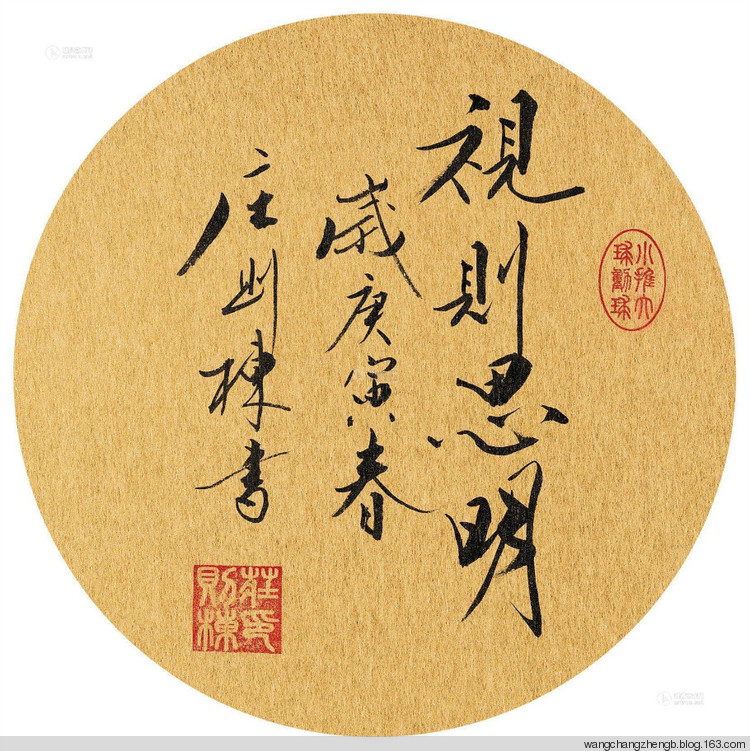 視則思明
歲庚寅春
庄则棟書
小球推動大球
莊則棟印
wangchangzhengb.blog.163.com